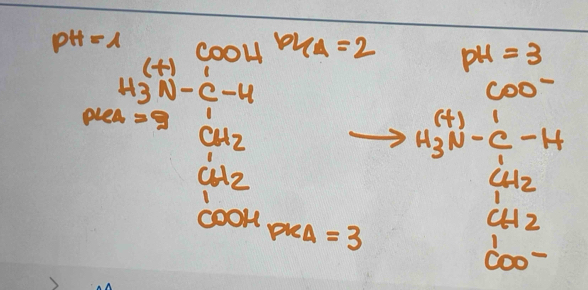 pH = 1
COOH pKA = 2
(+)
H3N - C - H
pKA = 9
CH2
CH2
COOH pKA = 3
→
pH = 3
COO⁻
(+)
H3N - C - H
CH2
CH2
COO⁻